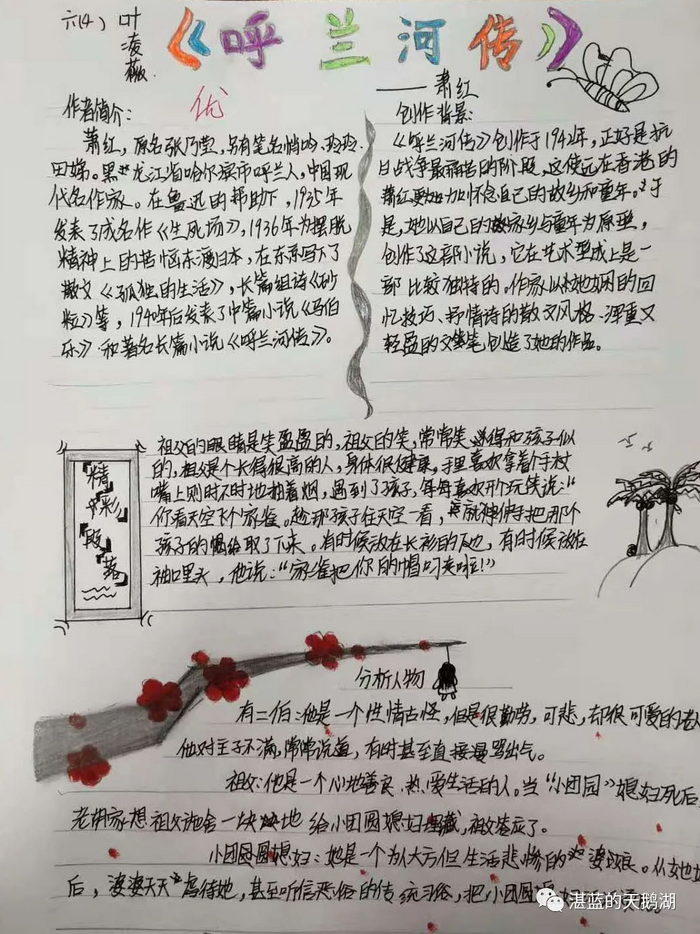 六(4)
叶凌薇
《呼兰河传》
——萧红
优
作者简介：
萧红，原名张乃莹，另有笔名悄吟、玲玲、
田娣。黑龙江省哈尔滨市呼兰人，中国现
代名作家。在鲁迅的帮助下，1935年
发表了成名作《生死场》，1936年为摆脱
精神上的苦恼东渡日本，在东京写下了
散文《孤独的生活》，长篇组诗《砂
粒》等，1940年后发表了中篇小说《马伯
乐》和著名长篇小说《呼兰河传》。
创作背景：
《呼兰河传》创作于1942年，正好是抗
日战争最痛苦的阶段，这使远在香港的
萧红更加怀念自己的故乡和童年。于
是，她以自己的家乡与童年为原型，
创作了这部小说，它在艺术型成上是一
部比较独特的。作家以她娴的回
忆技巧、抒情诗的散文风格、浑重又
轻盈的文笔创造了她的作品。
精彩段落
祖父的眼睛是笑盈盈的，祖父的笑，常常笑得和孩子似
的，祖父是个长得很高的人，身体很健康，手里喜欢拿着个手杖
嘴上则时不时地抽着烟，遇到了孩子，每每喜欢开个玩笑说：“
你看天空飞个家雀。趁那孩子往天空一看，就伸手把那个
孩子的帽给取了下来。有时候放在长衫的下边，有时候放在
袖口里头，他说：“家雀把你的帽叼来啦！”
分析人物
有二伯：他是一个性情古怪，但是很勤劳，可悲，却很可爱的老
他对主子不满，常常说道，有时甚至直接漫骂出气。
祖父：他是一个心地善良、热爱生活的人。当“小团圆”媳妇死后，
老胡家想祖父施舍一块地给小团圆媳妇埋藏，祖父答应了。
小团圆媳妇：她是一个为人大方但生活悲惨的
后，婆婆天天虐待她，甚至听信恶俗的传统习俗，把小团圆
湛蓝的天鹅湖